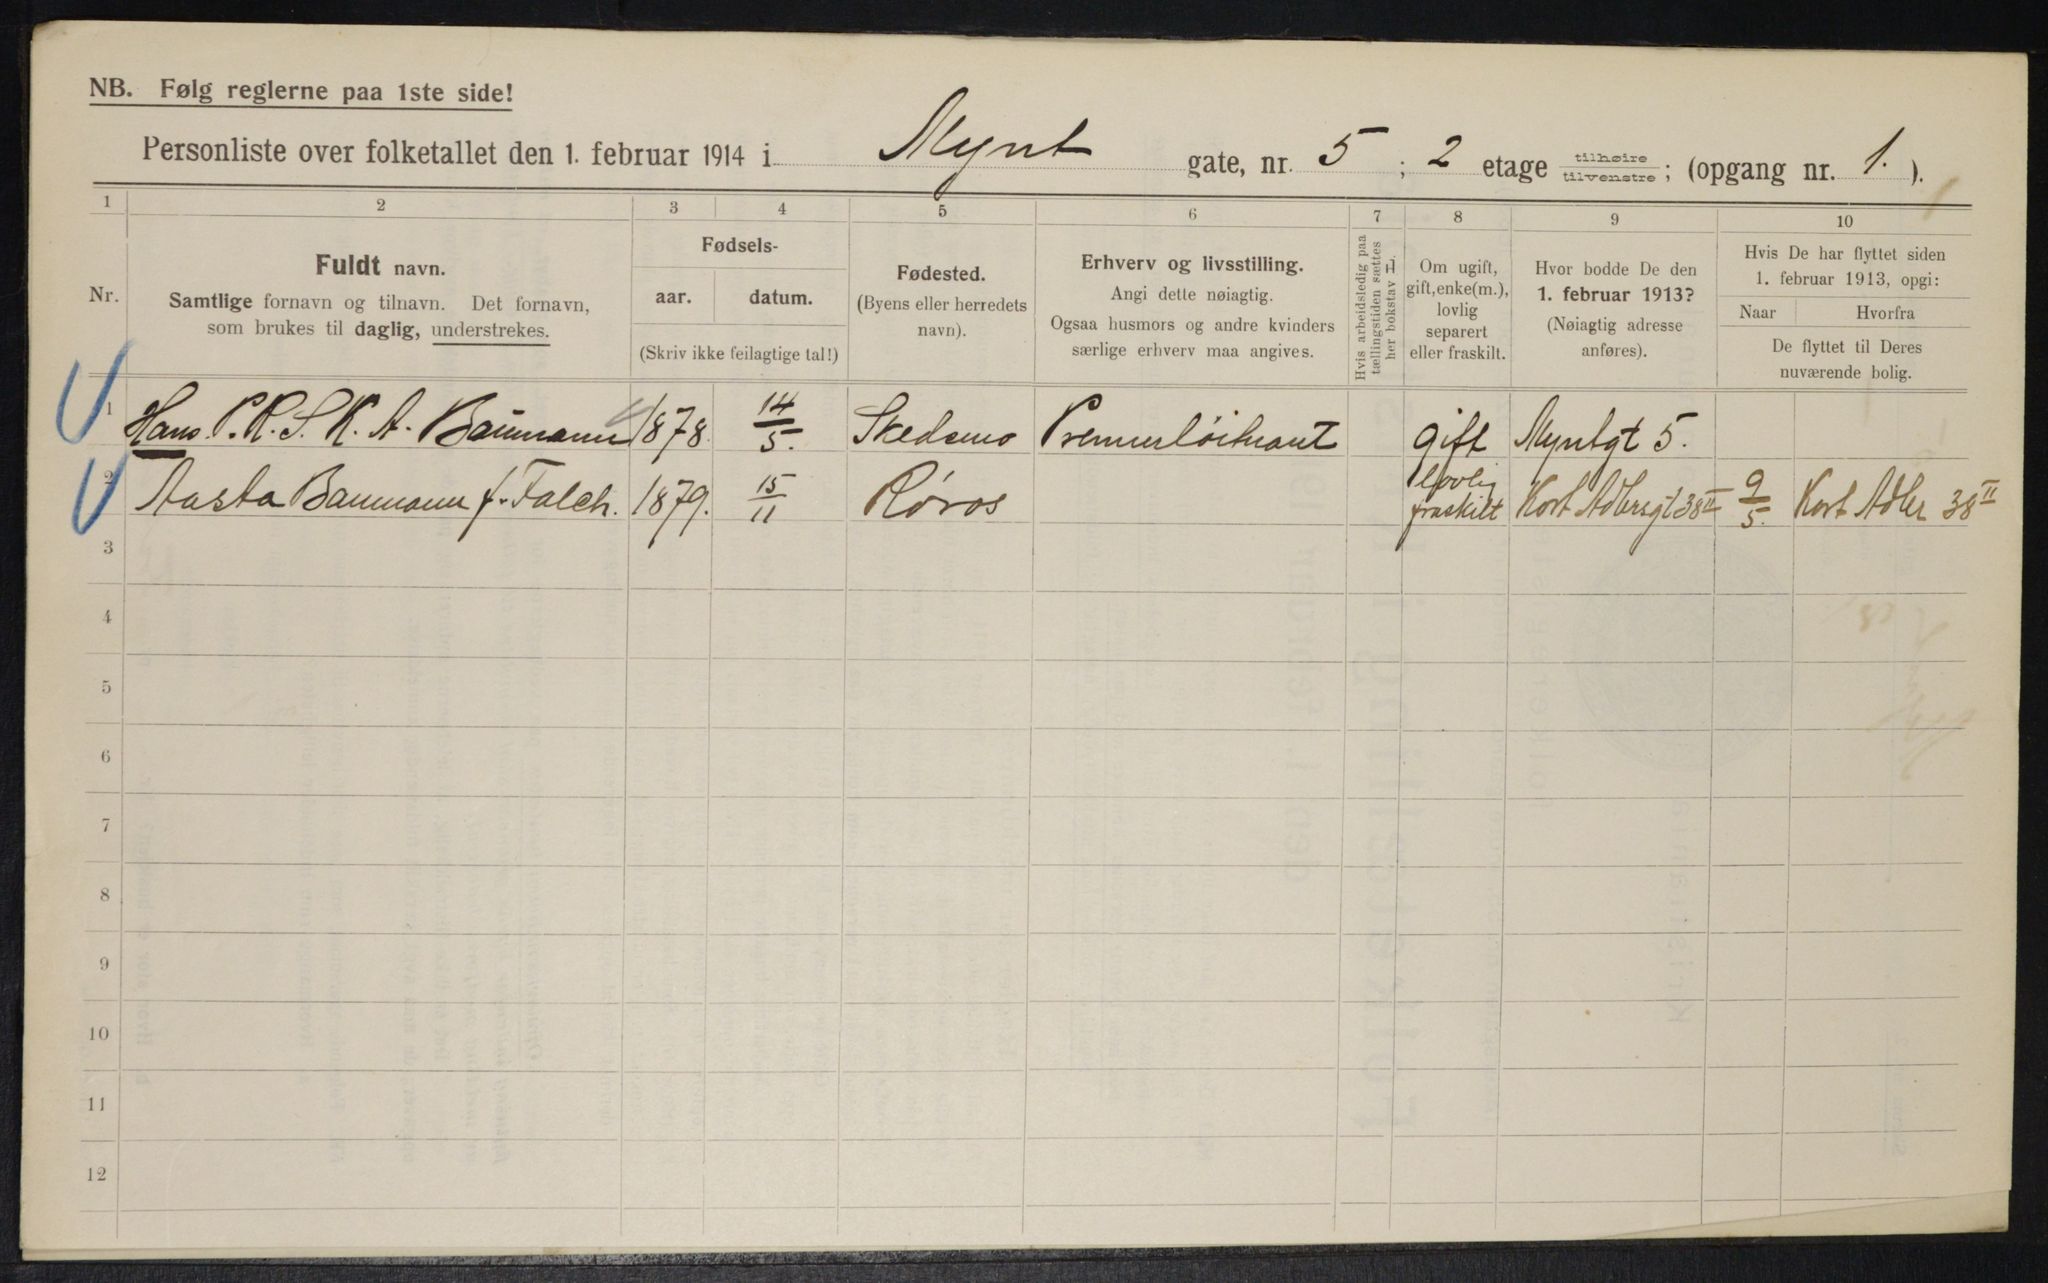 NB. Følg reglerne paa 1ste side!
Personliste over folketallet den 1. februar 1914 i Mynt gate, nr. 5 ; 2 etage tilhøire tilvenstre ; (opgang nr. 1. ).
1 2 3 4 5 6 7 8 9 10
Nr.
Fuldt navn.
Samtlige fornavn og tilnavn. Det fornavn,
som brukes til daglig, understrekes.
Fødsels-
aar. datum.
(Skriv ikke feilagtige tal!)
Fødested.
(Byens eller herredets
navn).
Erhverv og livsstilling.
Angi dette nøiagtig.
Ogsaa husmors og andre kvinders
særlige erhverv maa angives.
Hvis arbeidsledig paa
tællingstiden sættes
her bokstav L.
Om ugift,
gift, enke(m.),
lovlig
separert
eller fraskilt.
Hvor bodde De den
1. februar 1913?
(Nøiagtig adresse
anføres).
Hvis De har flyttet siden
1. februar 1913, opgi:
Naar Hvorfra
De flyttet til Deres
nuværende bolig.
1 Hans P. R. S. K. A. Baumann 1878. 14/5. Skedsmo Premierløitnant gift Myntgt 5.
2 Aasta Baumann f. Falch. 1879. 15/11 Røros lovlig fraskilt Kort Adlersgt 38 II 9/5. Kort Adler 38 II
3
4
5
6
7
8
9
10
11
12